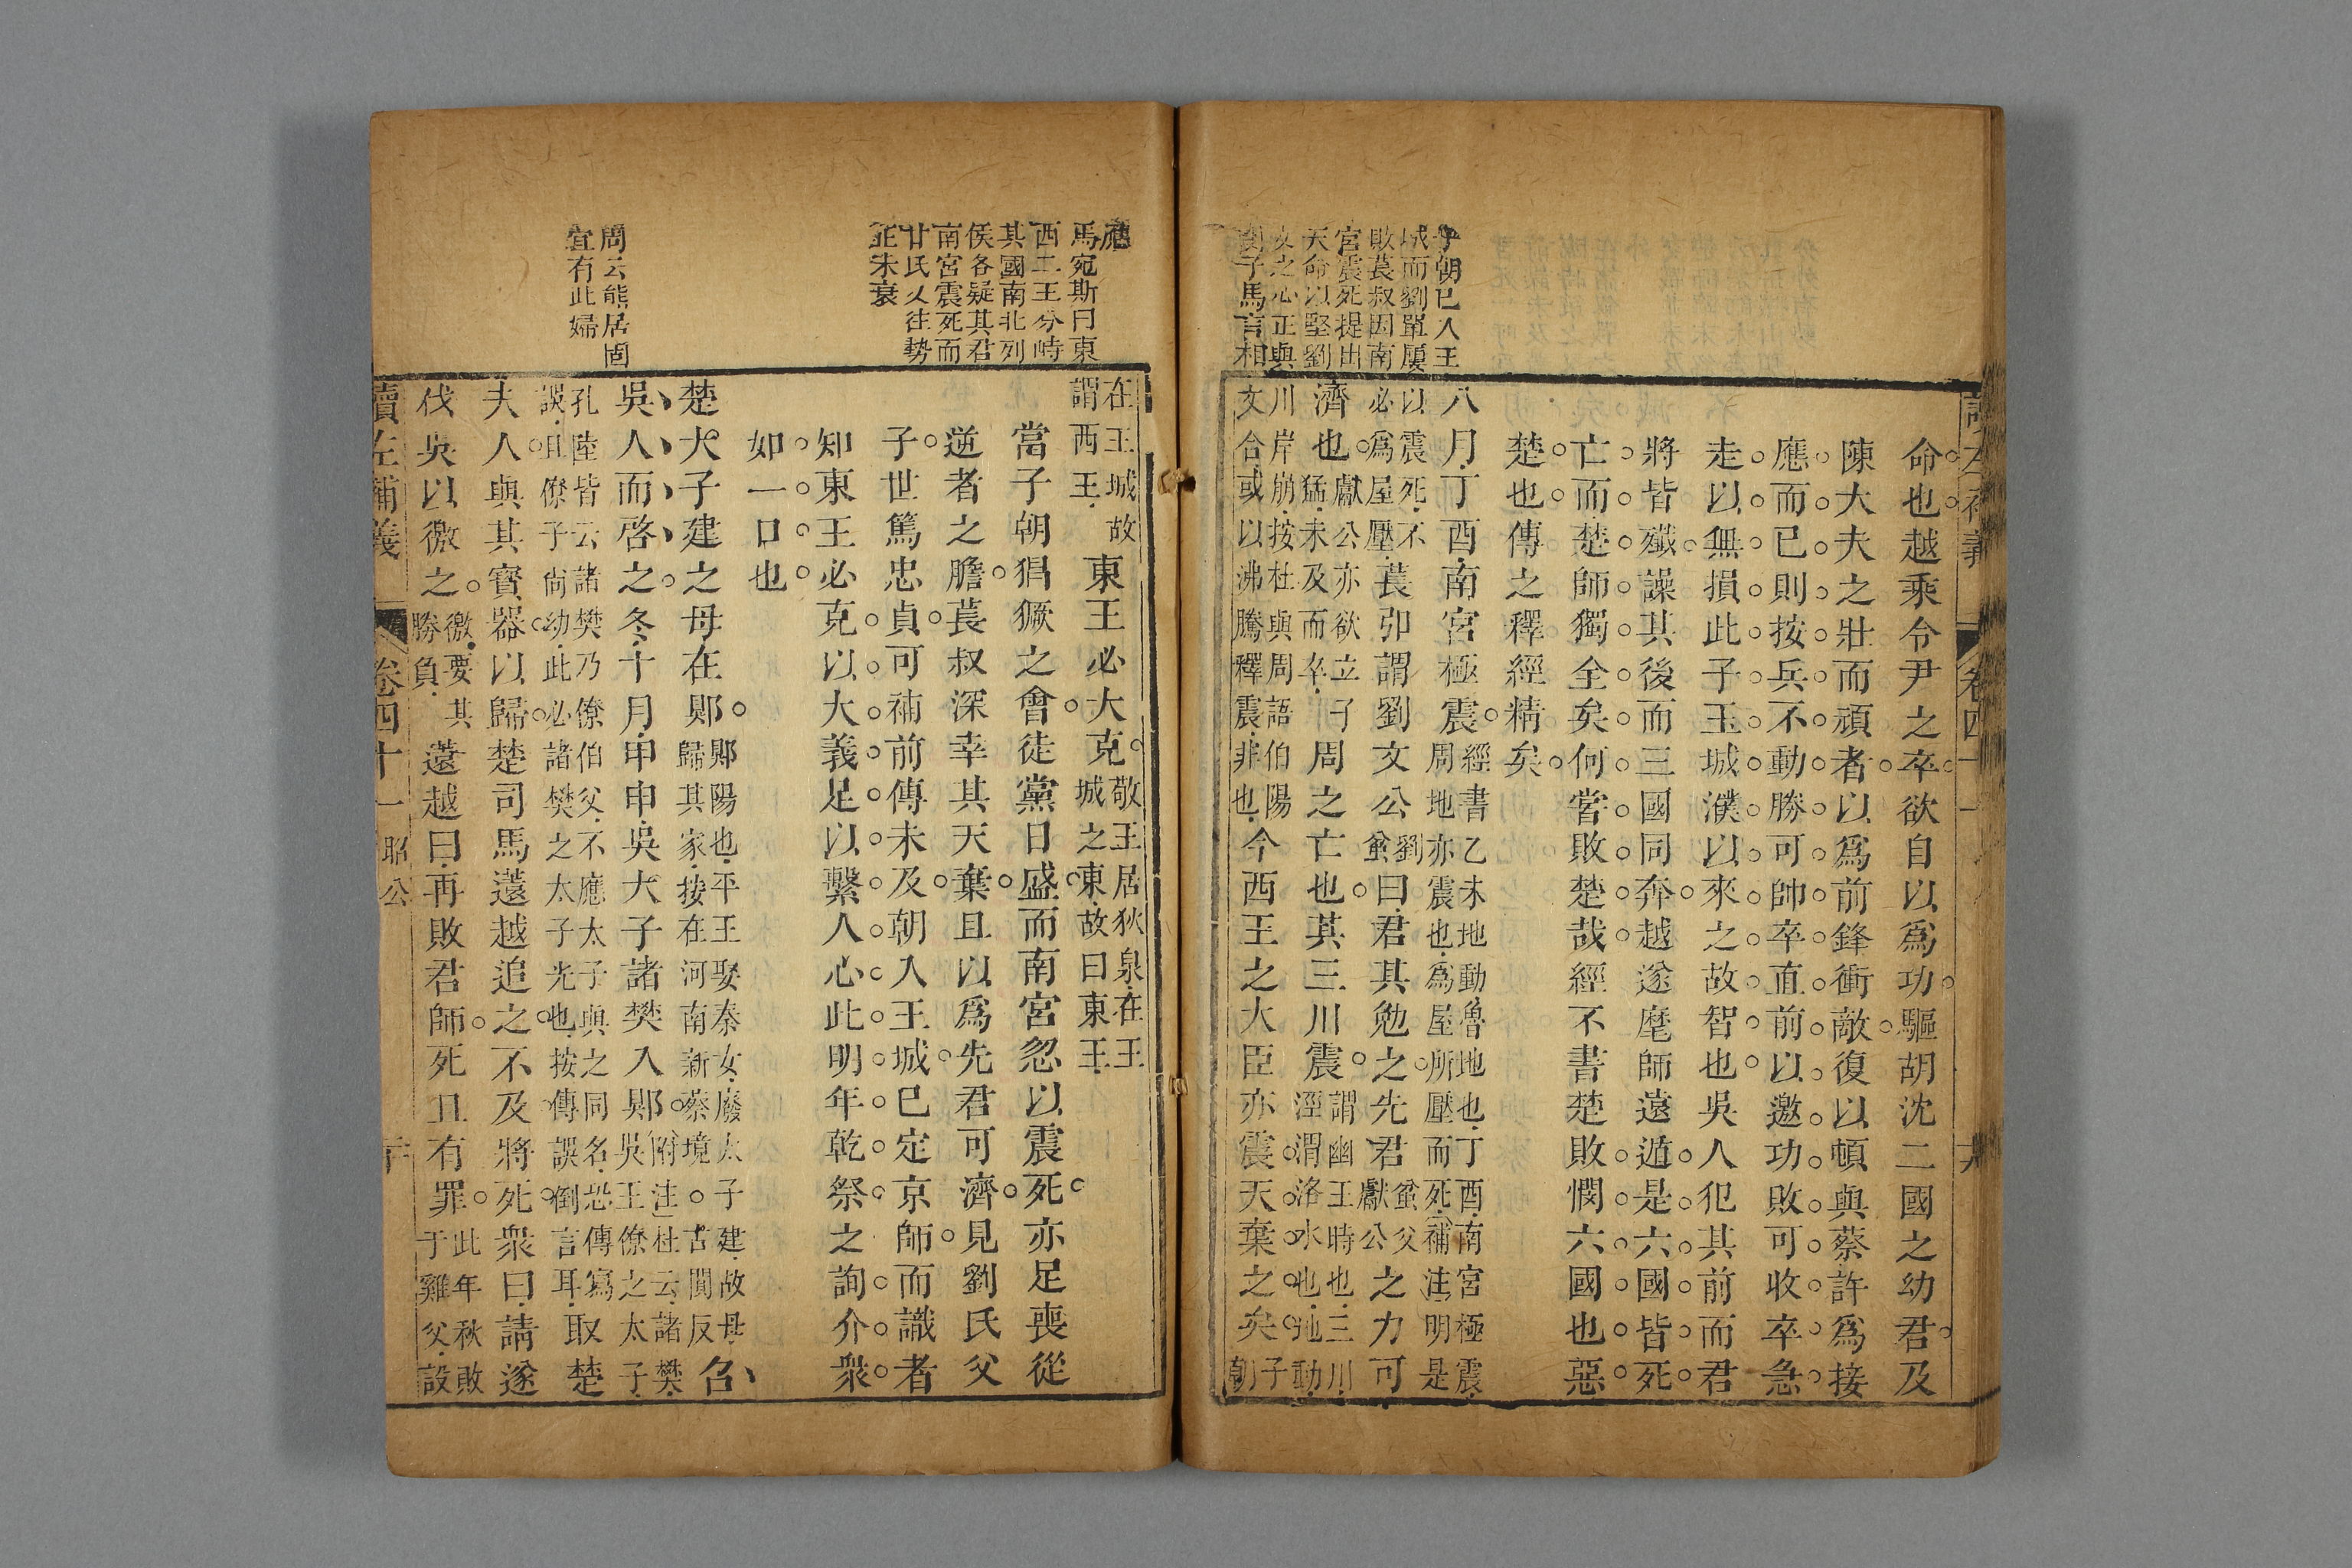 子朝已入王
城而劉單屢
敗萇叔因南
宮震死提出
天命以堅劉
文之心正與
劉子馬言相
命也越乘令尹之卒欲自以爲功驅胡沈二國之幼君及
陳大夫之壯而頑者以爲前鋒衝敵復以頓與蔡許爲接
應而已則按兵不動勝可帥卒直前以邀功敗可收卒急
走以無損此子玉城濮以來之故智也吳人犯其前而君
將皆殲譟其後而三國同奔越遂麾師遠遁是六國皆死
亡而楚師獨全矣何嘗敗楚哉經不書楚敗憫六國也惡
楚也傳之釋經精矣
八月丁酉南宮極震經書乙未地動魯地也丁酉南宮極震周地亦震也爲屋所壓而死補注明是
以震死不必爲屋壓萇弘謂劉文公劉蚠曰君其勉之先君蚠父獻公之力可
濟也獻公亦欲立子猛未及而卒周之亡也其三川震謂幽王時也三川涇渭洛水也地動
川岸崩按杜與周語伯陽文合或以沸騰釋震非也今西王之大臣亦震天棄之矣子朝
應
馬宛斯曰東
西二王分峙
其國南北列
侯各疑其君
南宮震死而
廿氏又往勢
正未衰
周云熊居固
宜有此婦
在王城故謂西王東王必大克敬王居狄泉在王城之東故曰東王
當子朝猖獗之會徒黨日盛而南宮忽以震死亦足喪從
逆者之膽萇叔深幸其天棄且以爲先君可濟見劉氏父
子世篤忠貞可補前傳未及朝入王城已定京師而識者
知東王必克以大義足以繫人心此明年乾祭之詢介衆
如一口也
楚大子建之母在郹郹陽也平王娶秦女廢太子建故母歸其家按在河南新蔡境○古闃反召
吳人而啓之冬十月甲申吳大子諸樊入郹附注杜云諸樊吳王僚之太子
孔陸皆云諸樊乃僚伯父不應太子與之同名恐傳寫誤且僚子尙幼此必諸樊之太子光也按傳誤倒言耳取楚
夫人與其寶器以歸楚司馬薳越追之不及將死衆曰請遂
伐吳以徼之徼要其勝負薳越曰再敗君師死且有罪此年秋敗于雞父設
讀左補義 卷四十一 昭公